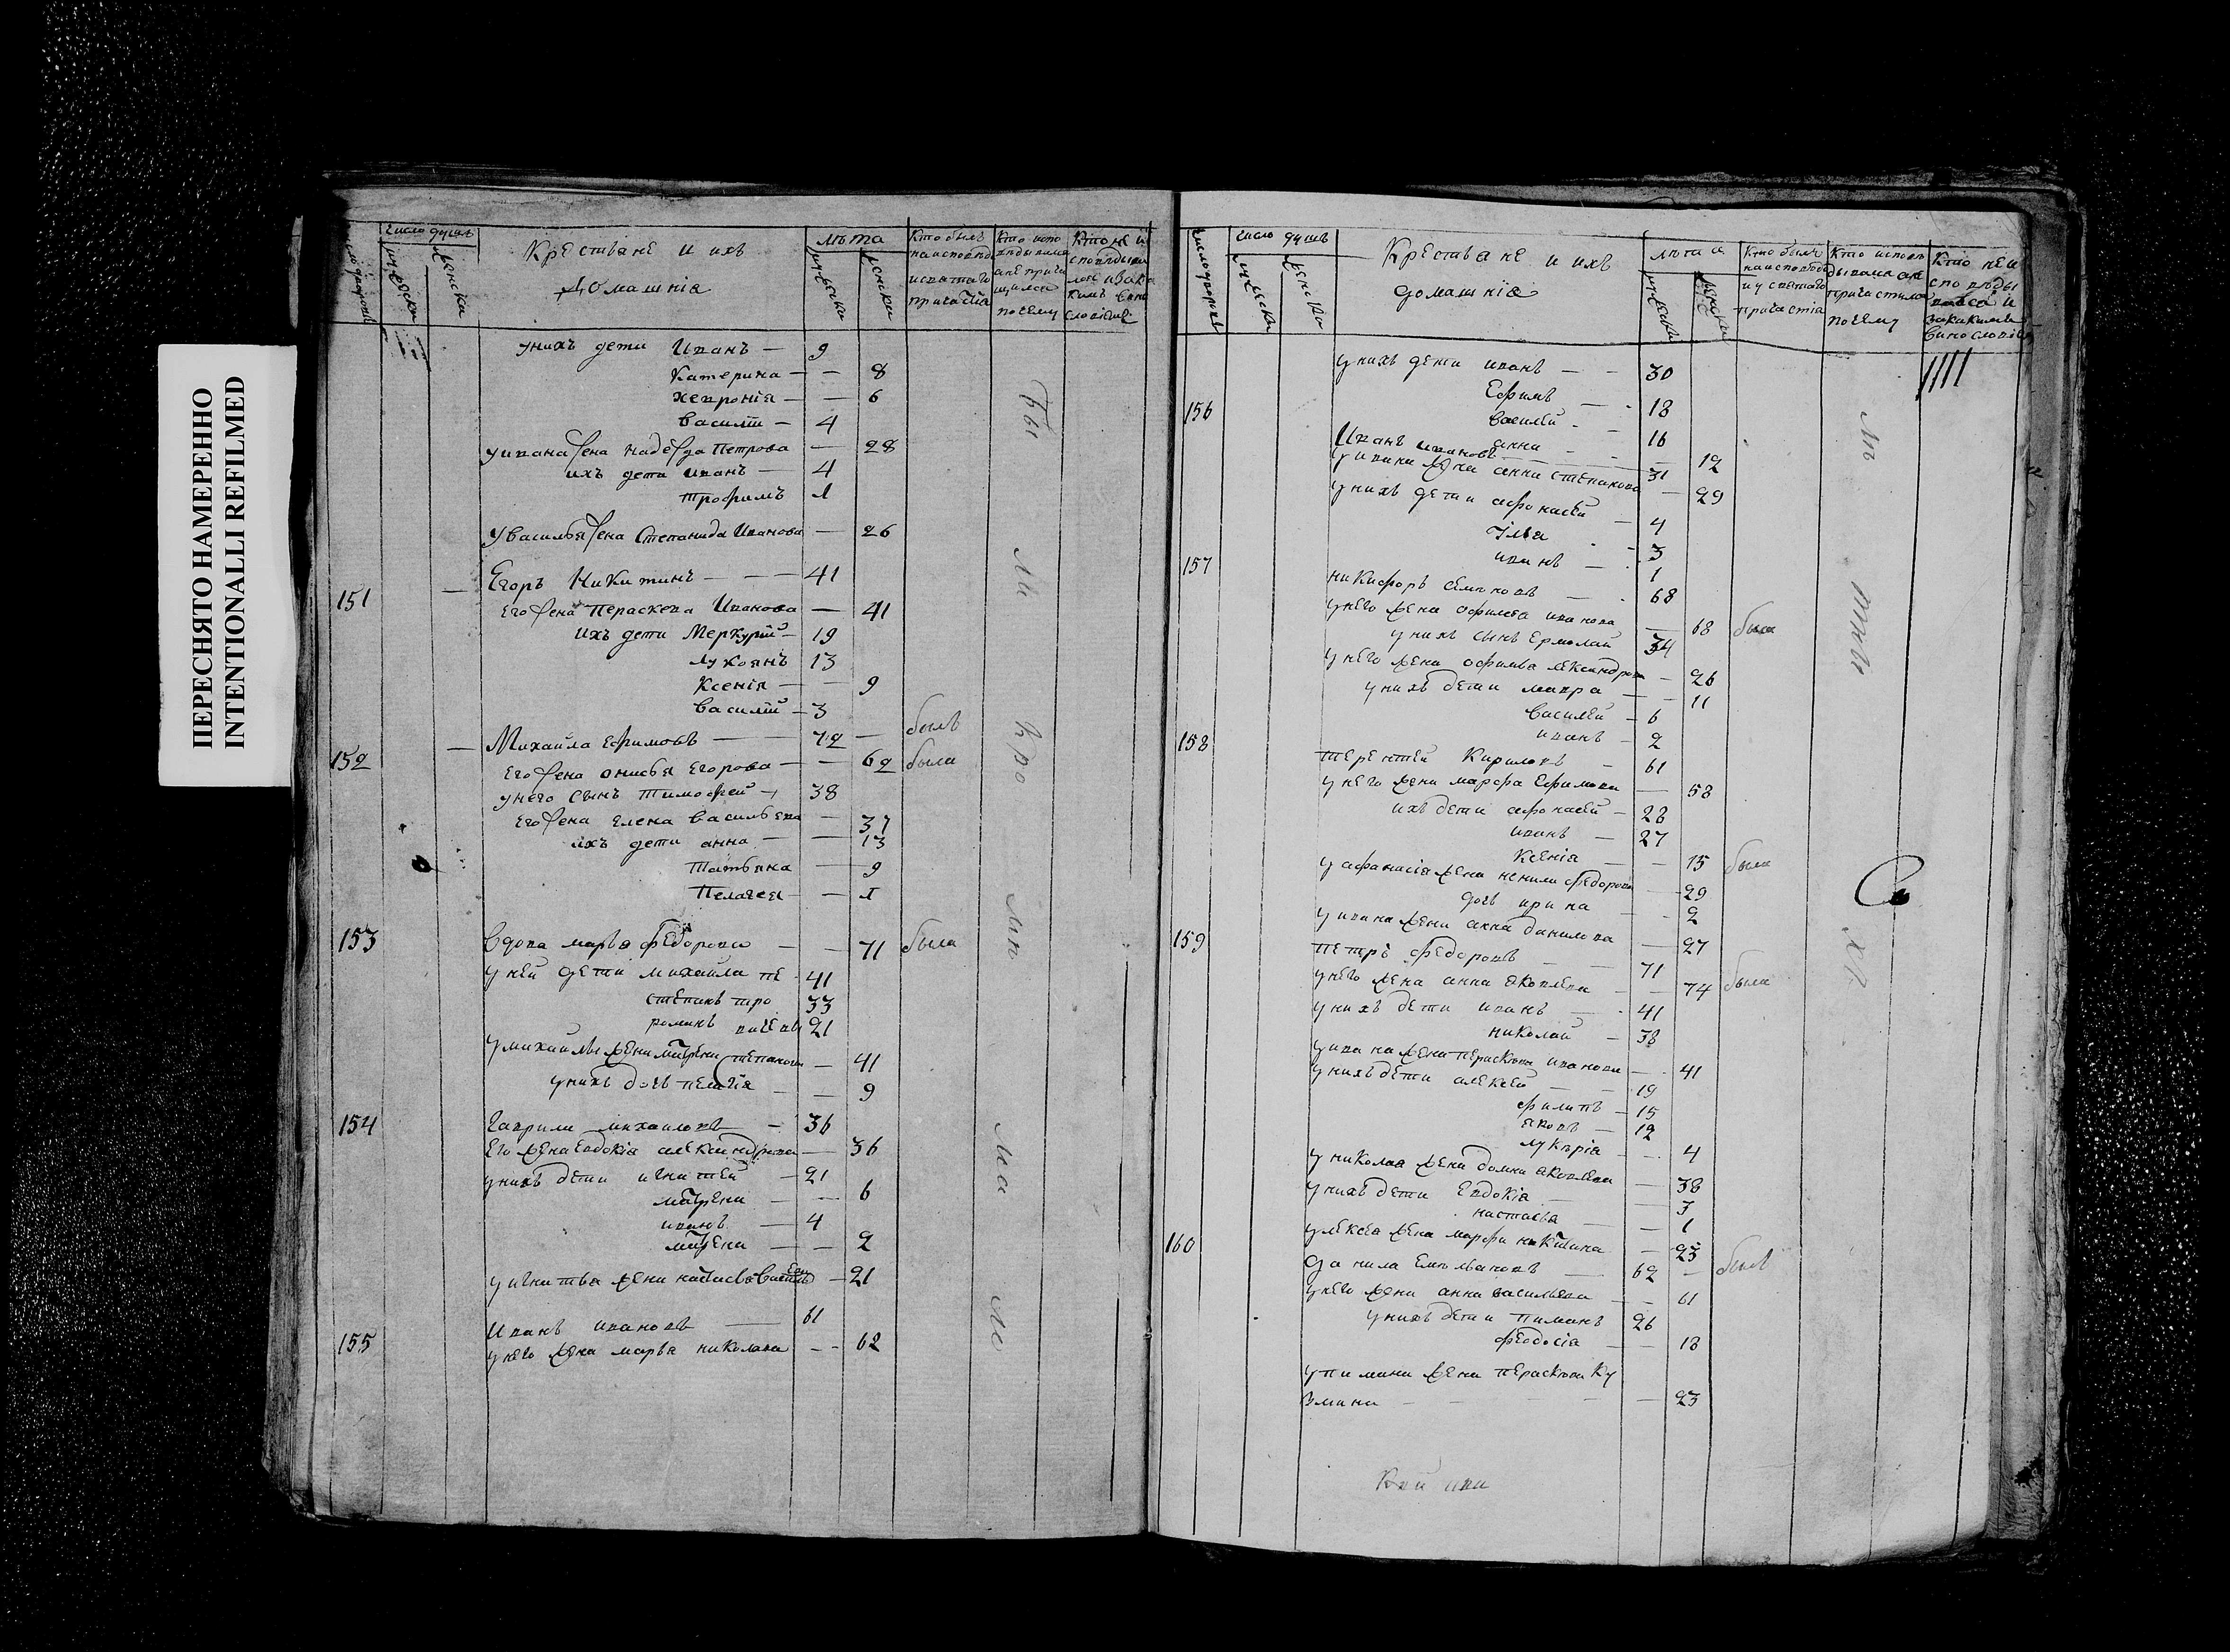 ПЕРЕСНЯТО НАМЕРЕННО
INTENTIONALLI REFILMED
число душъ
Крестьяне и ихъ
Домашнiя
лѣта
мужеска
женска
Кто былъ
на исповѣди
и святаго
причастiя
унихъ дети Иванъ — 9
Катерина — — 8
хевронiя — — 6
Василiй — 4
уивана жена Надежда Петрова — 28
ихъ дети иванъ — 4
трофимъ 1
увасилья жена Степанида Иванова — 26
151 Егоръ Никитинъ — — — 41
Его жена Параскева Иванова — 41
ихъ дети Меркурiй — 19
лукоянъ 13
Ксенiя — — 9
Василiй — 3
152 Михайла Ефимовъ — — 72 — былъ
Его жена онисья Егорова — — 62 была
унего Сынъ тимофей — 38
Его жена Елена васильева — 37
ихъ дети анна — — 13
Татьяна — 9
Пелагея — 1
153 Вдова марья федорова — — 71 была
уней дети михайла пе 41
степанъ тро 33
романъ 21
умихайлы жена матрена степанова — 41
унихъ дочь пелагiя — — 9
154 Гаврила михаиловъ — 36
Его жена Евдокiя александрова — 36
унихъ дети игнатей — 21
матрена — — 6
иванъ — 4
матрена — — 2
уигнатья жена настасья — 21
155 Иванъ ивановъ — 61
унего жена марья николаева — — 62
число дворовъ
число душъ
мужеска
женска
Крестьяне и ихъ
домашнiя
лѣта
мужеска
женска
Кто былъ
на исповѣди
и у святаго
причастiя
унихъ дети иванъ — — 30
Ефимъ — 18
василей — 16
анна — — 12
156 Иванъ ивановъ — 31
уивана жена анна степанова — 29
унихъ дети афонасей — 4
Илья — 3
иванъ — 1
157 никифоръ семеновъ — 68
унего жена офимья иванова — 68 была
унихъ сынъ Ермолай 34
унего жена офимья лександрова — 26
унихъ дети мавра — 11
василей — 6
иванъ — 2
158 терентей Кириловъ — 61
унего жена марфа Ефимова — 58
ихъ дети афонасей — 28
иванъ — 27
Ксенiя — — 15 была
уафанасiя жена ненила федорова — 29
дочь ирина — — 2
уивана жена анна данилова — 27
159 петръ федоровъ — — 71
унего жена анна яковлева — — 74 была
унихъ дети иванъ — 41
николай — 38
уивана жена параскева иванова — 41
унихъ дети алексей — — 19
филипъ — 15
яковъ — 12
лукерiя — — 4
униколая жена домна яковлева — 38
унихъ дети Евдокiя — — 3
настасья — — 1
улексея жена марфа никитина — 23
160 данила Емельяновъ — 62 — былъ
унего жена анна васильева — — 61
унихъ дети пиманъ 26
феодосiя — — 18
упимана жена параскева Ку
змина — — — — 23